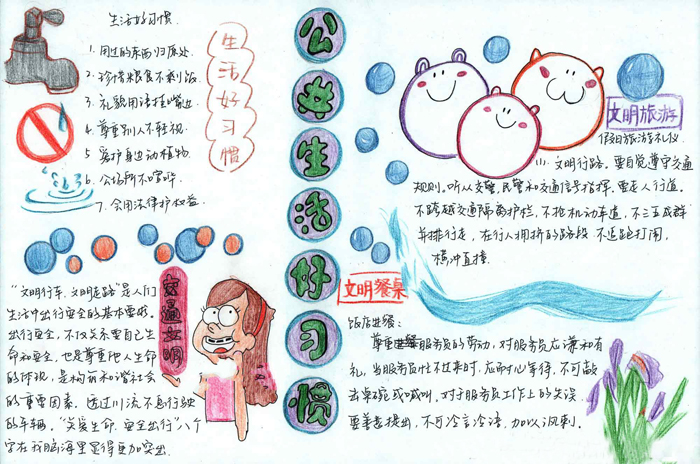 生活好习惯
1. 用过的东西归原处.
2. 珍惜粮食不剩饭.
3. 礼貌用语挂嘴边.
4. 尊重别人不轻视.
5. 爱护身边动植物.
6. 公场所不喧哗.
7. 会用法律护权益.
生活好习惯
公共生活好习惯
文明旅游
假日旅游礼仪
(1). 文明行路. 要自觉遵守交通
规则. 听从交警, 民警和交通信号指挥. 要走人行道.
不跨越交通隔离护栏, 不抢机动车道, 不三五成群
并排行走, 在行人拥挤的路段 不追跑打闹,
横冲直撞.
“文明行车, 文明走路”是人们
生活中出行安全的基本要求.
出行安全, 不仅关系要自己生
命和安全, 也是尊重他人生命
的体现, 是构筑和谐社会
的重要因素. 透过川流不息行驶
的车辆, “关爱生命, 安全出行”八个
字在我脑海里显得更加突出.
交通文明
文明餐桌
饭店进餐:
服务员的劳动, 对服务员应谦和有
礼, 当服务员忙不过来时, 应耐心等待, 不可敲
击桌碗或喊叫. 对于服务员工作上的失误
要善意提出, 不可冷言冷语, 加以讽刺.